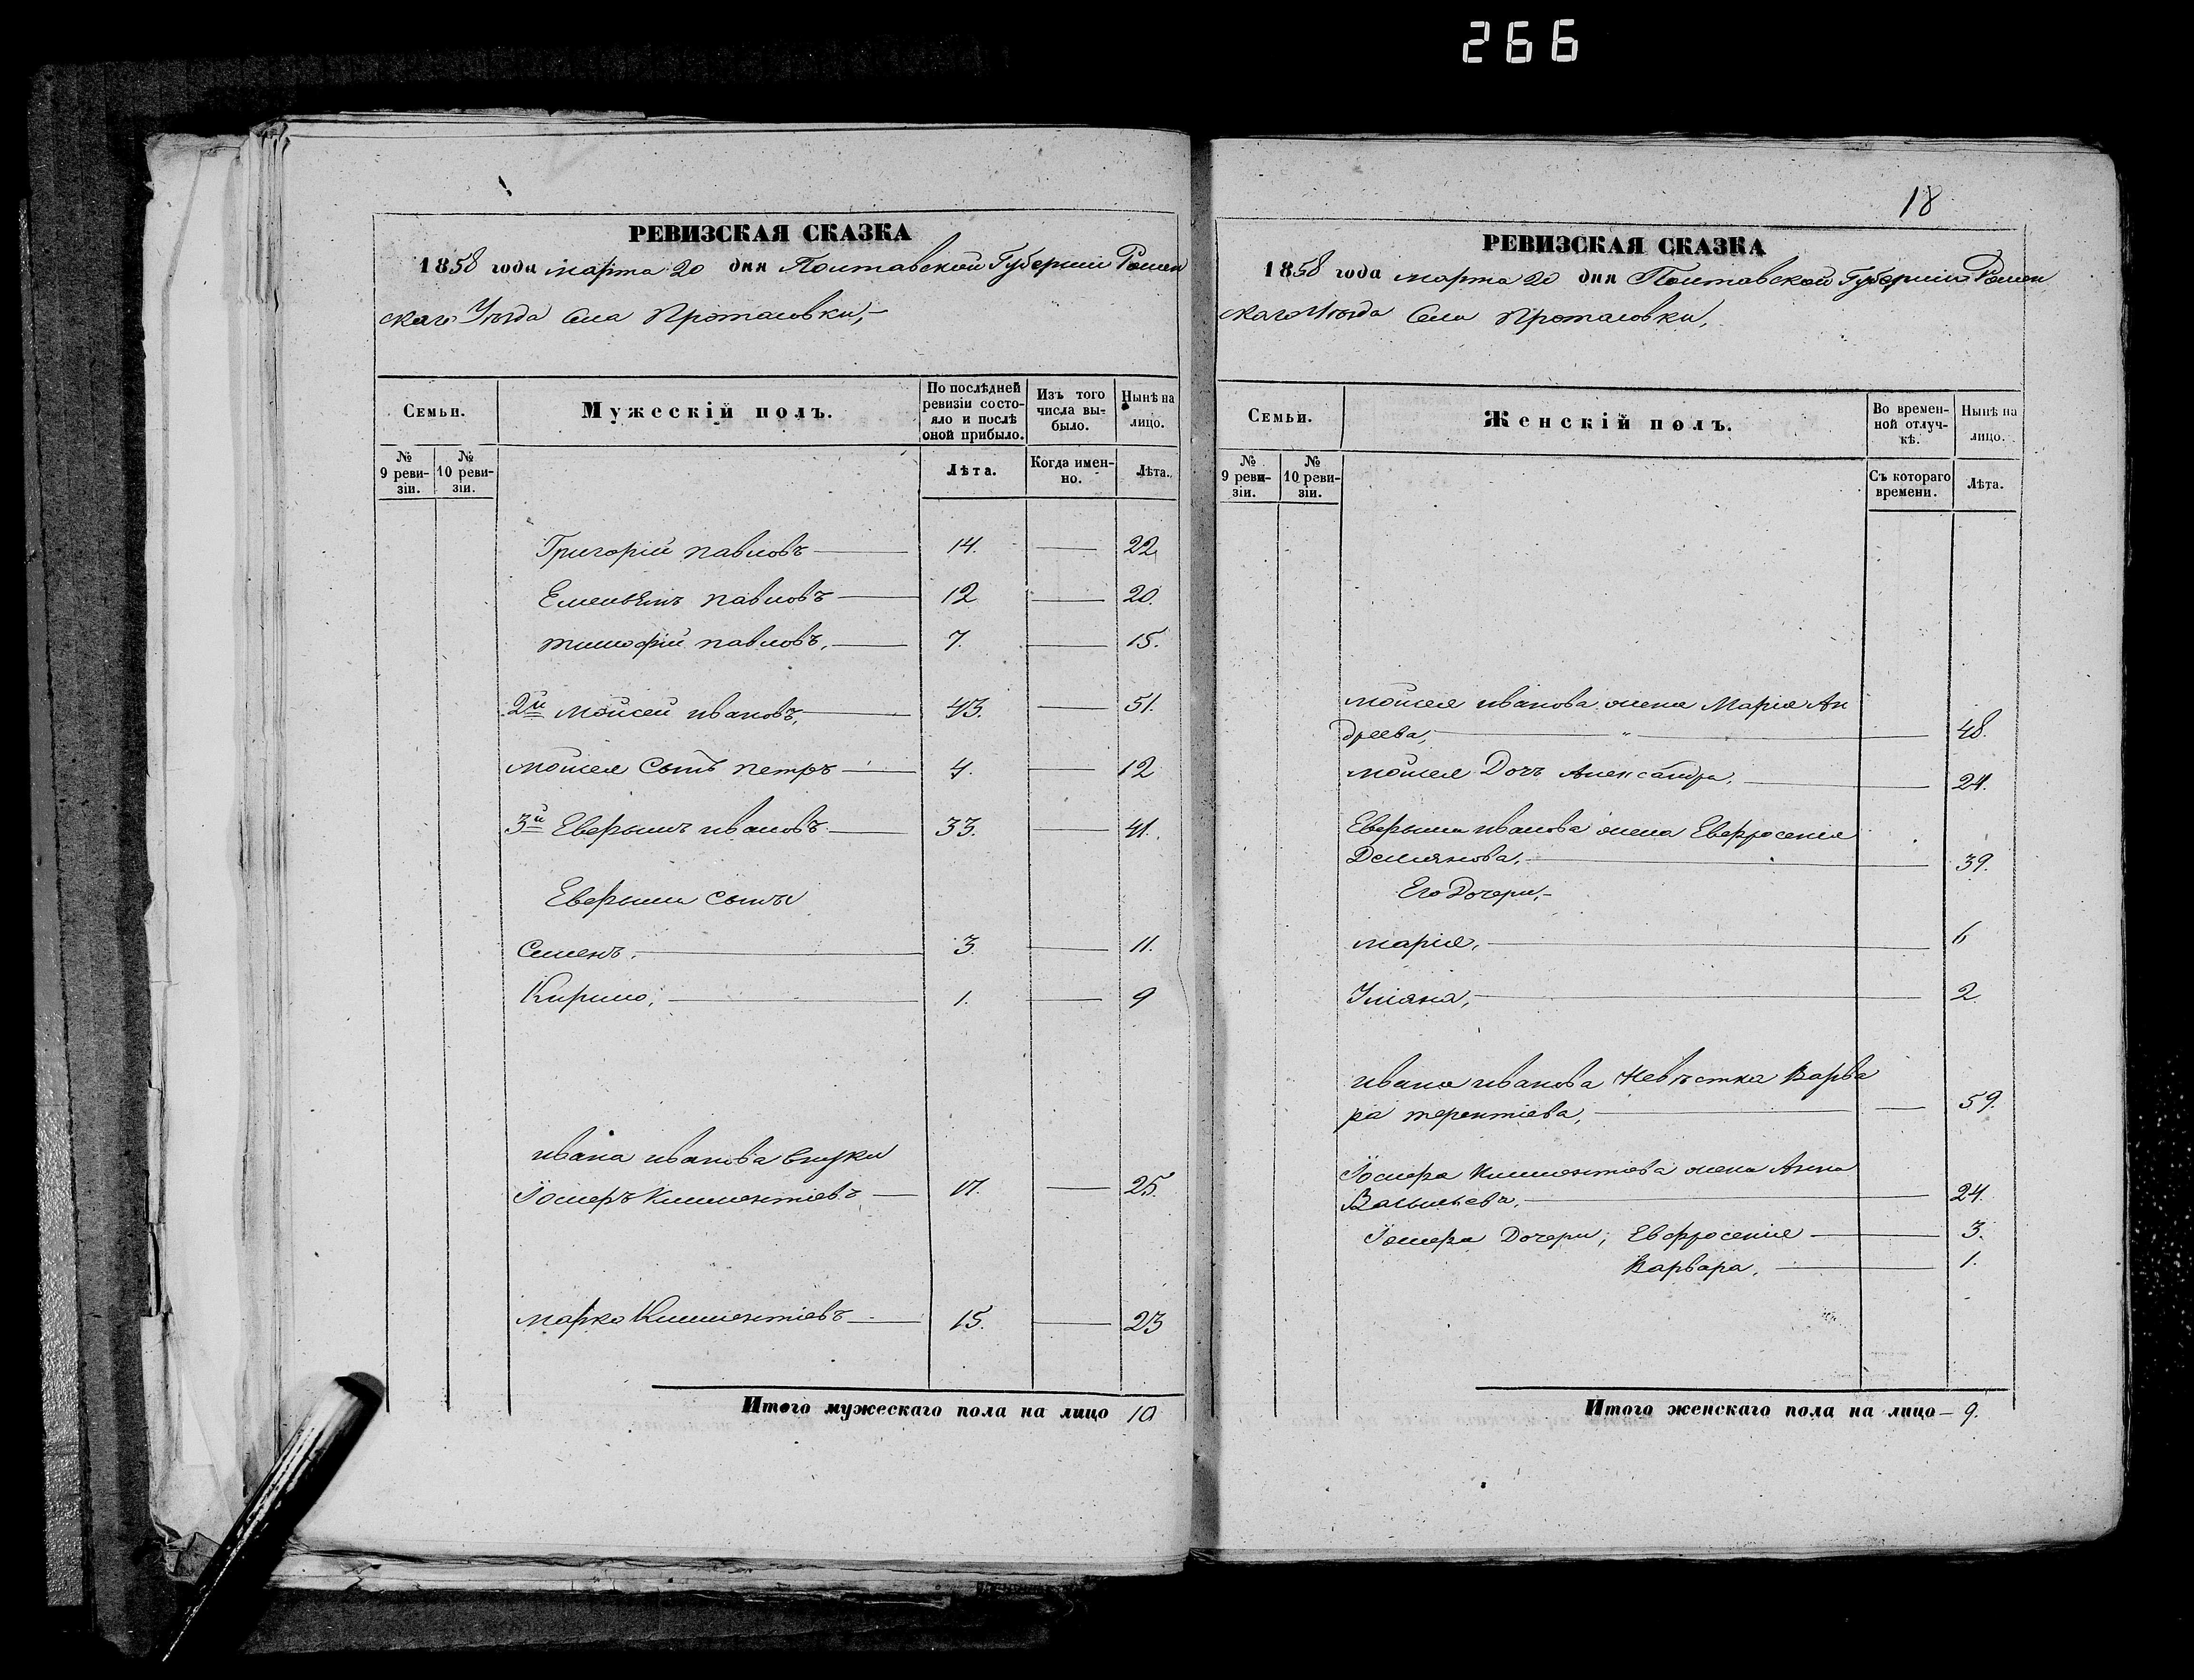 266
РЕВИЗСКАЯ СКАЗКА
1858 года марта 20 дня Полтавской Губерніи Ромен
скаго Уѣзда Села Протасовки,
Семьи.
Мужескій полъ.
По послѣдней ревизіи состояло и послѣ оной прибыло.
Изъ того числа выбыло.
Нынѣ на лицо.
№ 9 ревизіи.
№ 10 ревизіи.
Лѣта.
Когда именно.
Лѣта.
Григорій павловъ 14. 22
Емельянъ павловъ 12 20.
тимофій павловъ, 7. 15.
2й Мойсей ивановъ, 43. 51.
мойсея Сынъ петръ 4. 12
3й Еверьянъ ивановъ 33. 41.
Еверьяна сыны
Семенъ, 3. 11.
Кирило, 1. 9
ивана иванова внуки
Іосифъ Климентіевъ 17. 25.
марко Климентіевъ 15. 23
Итого мужескаго пола на лицо 10
18
РЕВИЗСКАЯ СКАЗКА
1858 года марта 20 дня Полтавской Губерніи Ромен
скаго Уѣзда Села Протасовки,
Семьи.
Женскій полъ.
Во временной отлучкѣ.
Нынѣ на лицо.
№ 9 ревизіи.
№ 10 ревизіи.
Съ котораго времени.
Лѣта.
мойсея иванова жена Марія Ан
дреева, 48.
мойсея Дочь Александра, 24.
Еверьяна иванова жена Евфросенія
Демянова, 39.
Его Дочери,
марія, 6
Уліяна, 2
ивана иванова Невѣстка Варва
ра терентіева, 59.
Іосифа Климентіева жена Анна
Васильева, 24.
Іосифа Дочери, Евфросенія 3.
Варвара, 1.
Итого женскаго пола на лицо 9.